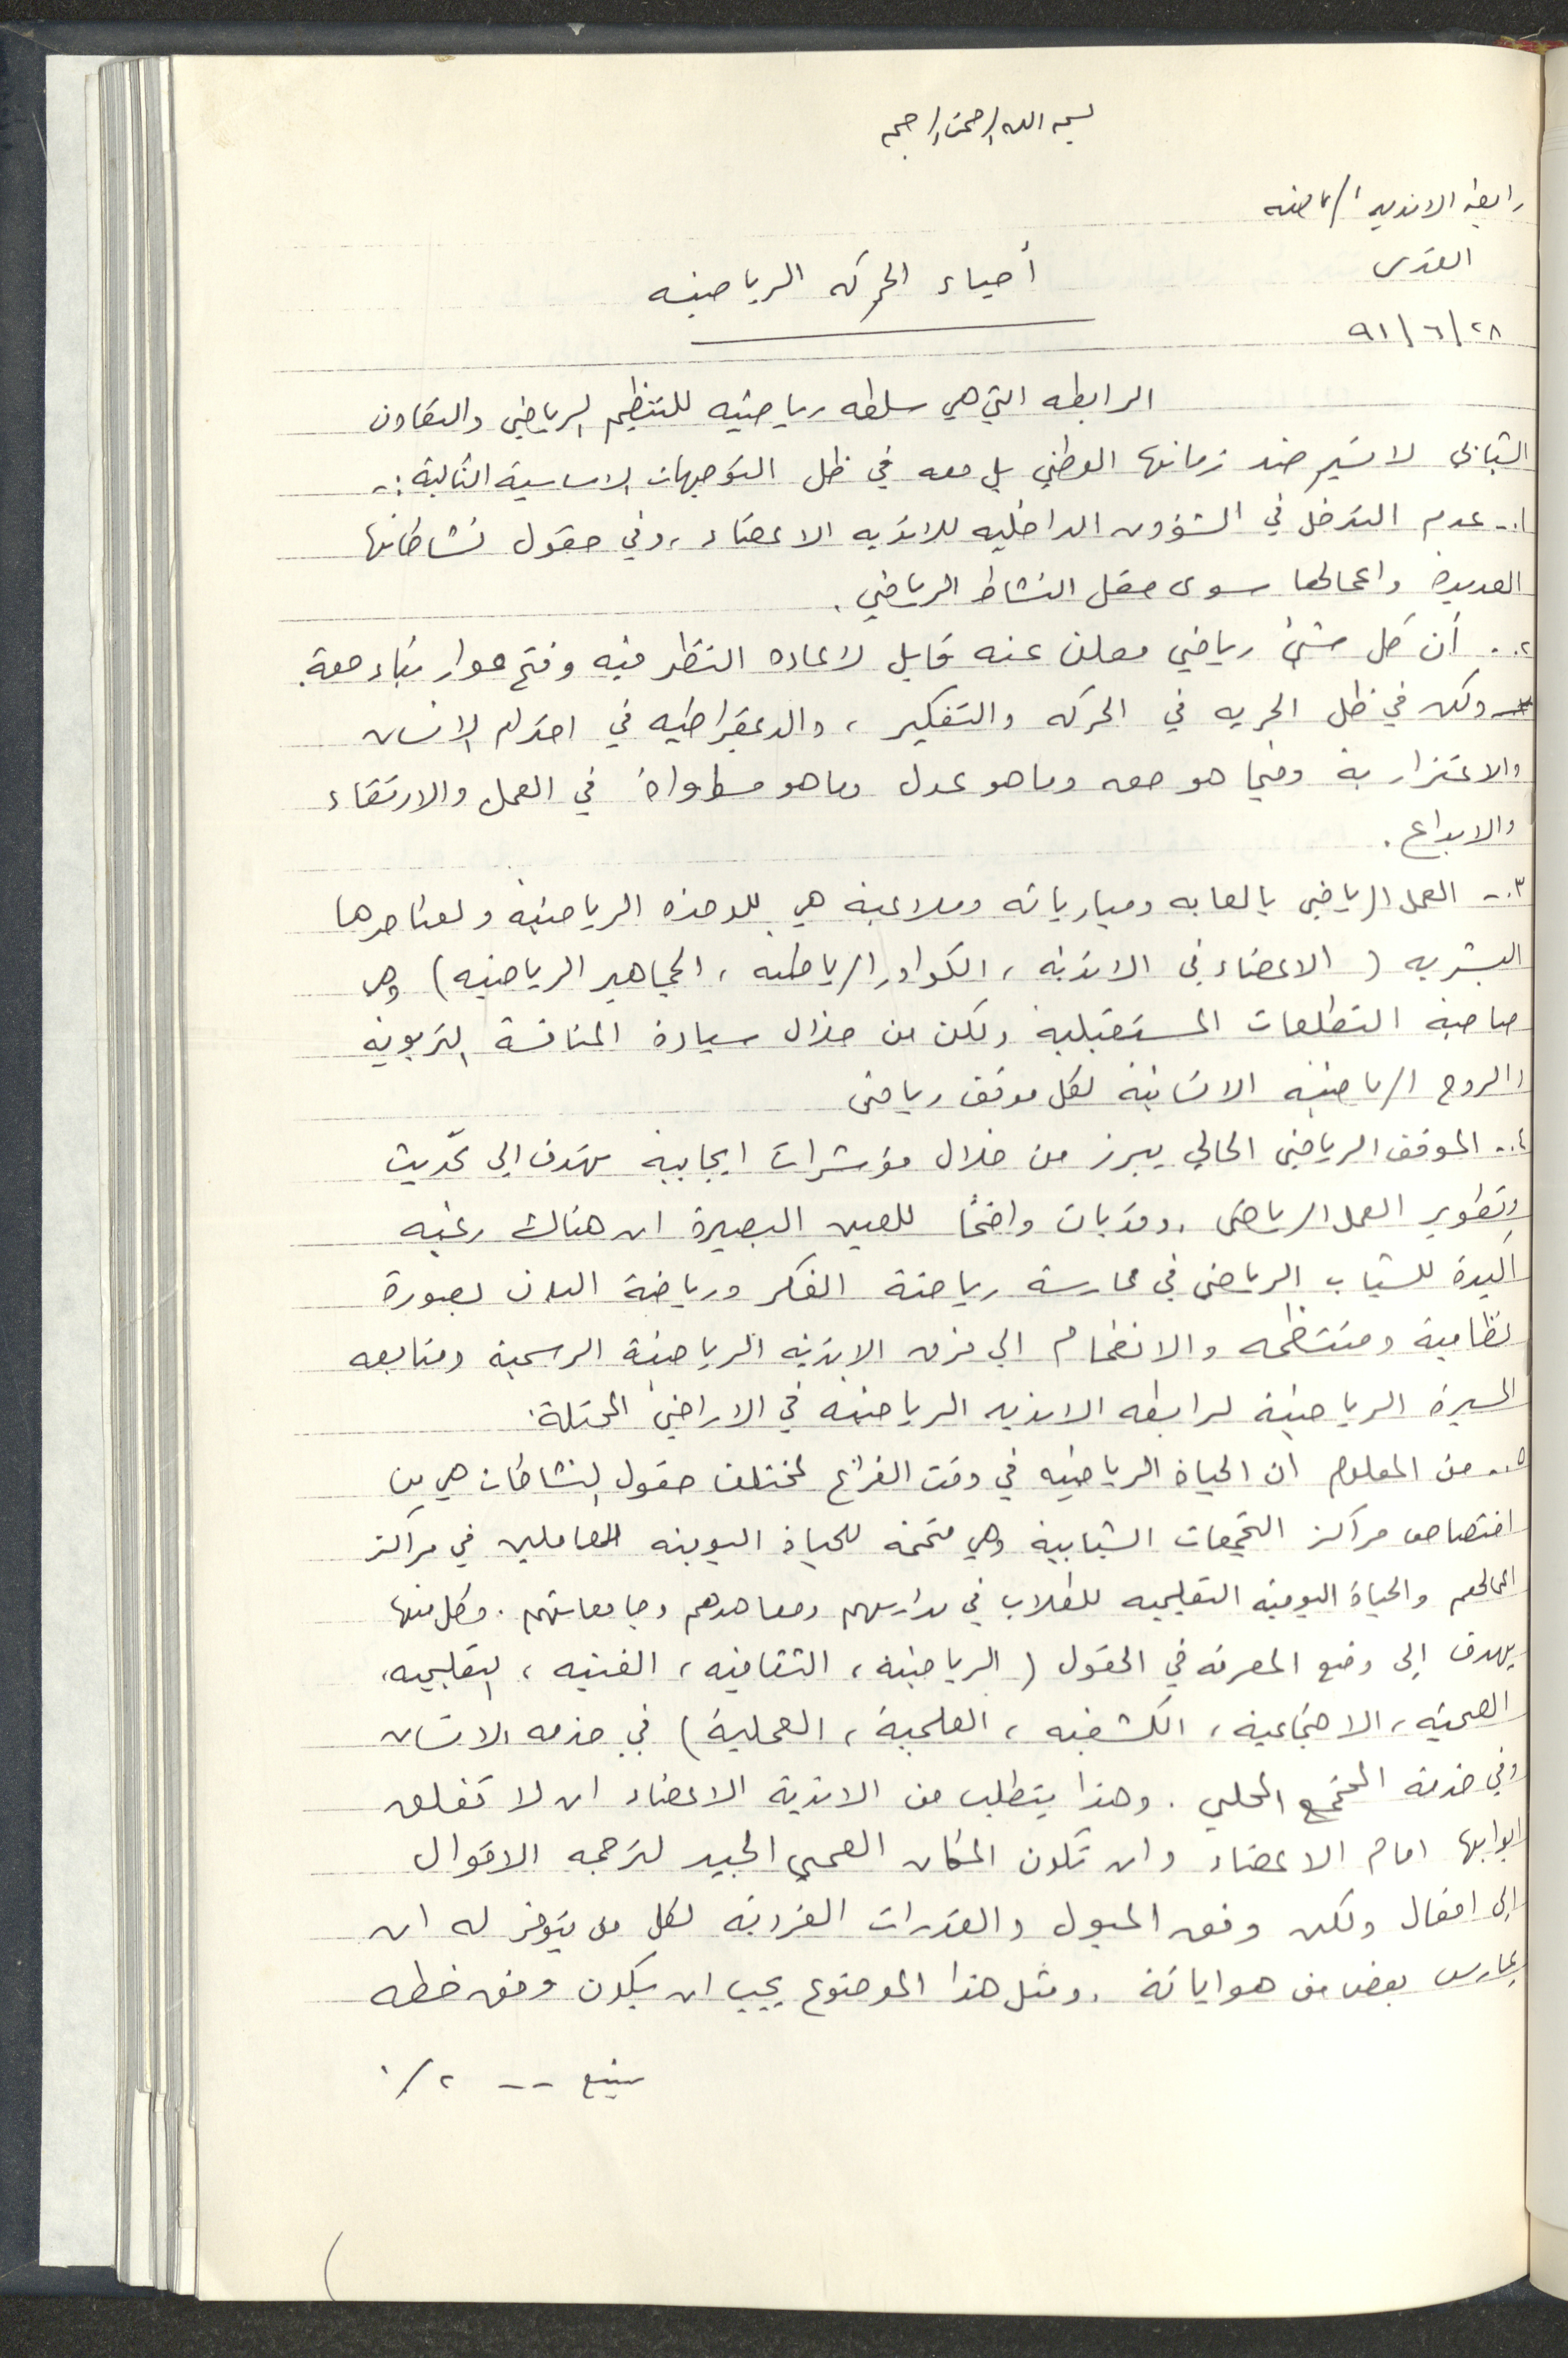 بسم الله الرحمن الرحيم
رابطة الانديه الرياضيه
القدس
أحياء الحركه الرياضيه
٢٨/٦/٩١
الرابطه التي هي سلطه رياضيه للتنظيم الرياضي والتعاون
الشبابي لا تسير ضد زمانها الوطني بل معه في ظل التوجيهات الاساسية التالية :-
١.- عدم التدخل في الشؤون الداخليه للانديه الاعضاء ، وفي حقول نشاطاتها
العديدة واعمالها سوى حقل النشاط الرياضي .
٢.- أن كل شئ رياضي معلن عنه قابل لاعاده النظر فيه وفتح حوار بناء معه .
ولكن في ظل الحريه في الحركه والتفكير ، والدمقراطيه في احترام الانسان
والاعتزار به وفيما هو حق وما هو عدل وما هو مساواة في العمل والارتقاء
والابداع .
٣.- العمل الرياضي بالعابه ومبارياته وملاعبه هي للوحده الرياضيه ولعناصرها
البشريه ( الاعضاء في الاندية ، الكوادر الرياضيه ، الجماهير الرياضيه ) وهي
صاحبة التطلعات المستقبلية ولكن من خلال سيادة المنافسة التربويه
والروح الرياضيه الانسانية لكل موقف رياضي
٤.- الموقف الرياضي الحالي يبرز من خلال مؤشرات ايجابية تهدف الى تحديث
وتطوير العمل الرياضي . وقد بات واضحاً للعين البصيرة ان هناك رغبه
اكيدة للشباب الرياضي في ممارسة رياضة الفكر ورياضة البدن بصورة
نظامية ومنتظمه والانضمام الى فرق الاندية الرياضية الرسمية ومتابعه
المسيرة الرياضية لرابطه الانديه الرياضيه في الاراضي المحتلة .
٥.- من المعلوم ان الحياة الرياضيه في وقت الفراغ لمختلف حقول النشاطات هي من
اختصاص مراكز التجمعات الشبابية وهي متممه للحياة اليومية للعاملين في مراكز
اعمالهم والحياة اليومية التعليميه للطلاب في مدارسهم ومعاهدهم وجامعاتهم . وكل منها
يهدف الى وضع المعرفه في الحقول ( الرياضية ، الثقافيه ، الفنيه ، التعليميه ،
الصحية ، الاجتماعية ، الكشفيه ، العلمية ، العملية ) في خدمه الانسان
وفي خدمة المجتمع المحلي . وهذا يتطلب من الاندية الاعضاء ان لا تغلق
ابوابها امام الاعضاء وان تكون المكان الصحي الجيد لترجمه الاقوال
الى افعال ولكن وفق الميول والقدرات الفردية لكل من يتوفر له ان
يمارس بعض من هواياته . ومثل هذا الموضوع يجب ان يكون وفق خطه
يتبع -- ٢/٠